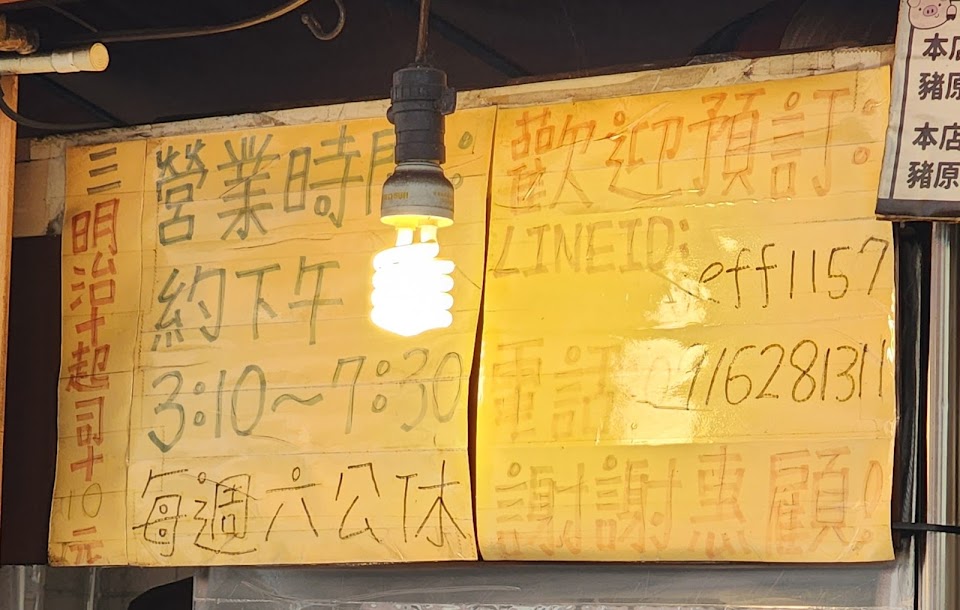 三明治+起司+10元
營業時間:
約下午
3:10~7:30
每週六公休
歡迎預訂:
LINEID:
eff1157
電話:0916281311
謝謝惠顧!
本店
豬原
本店
豬原